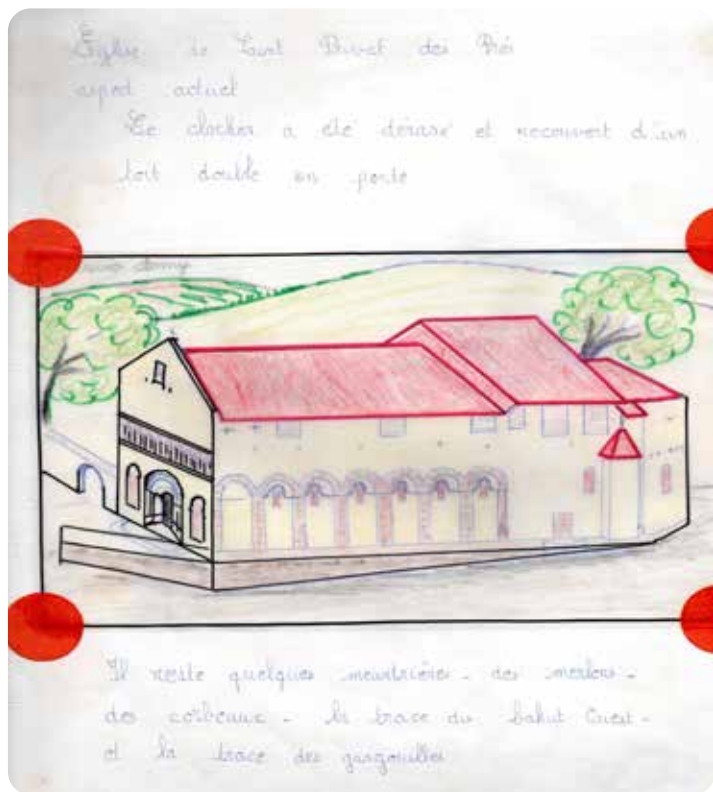 Église de Saint Privat des Prés
aspect actuel
Le clocher a été dérasé et recouvert d'un
toit double en pente
Il reste quelques meurtrières - des merlons -
des corbeaux - la trace du bahut Ouest -
et la trace des gargouilles